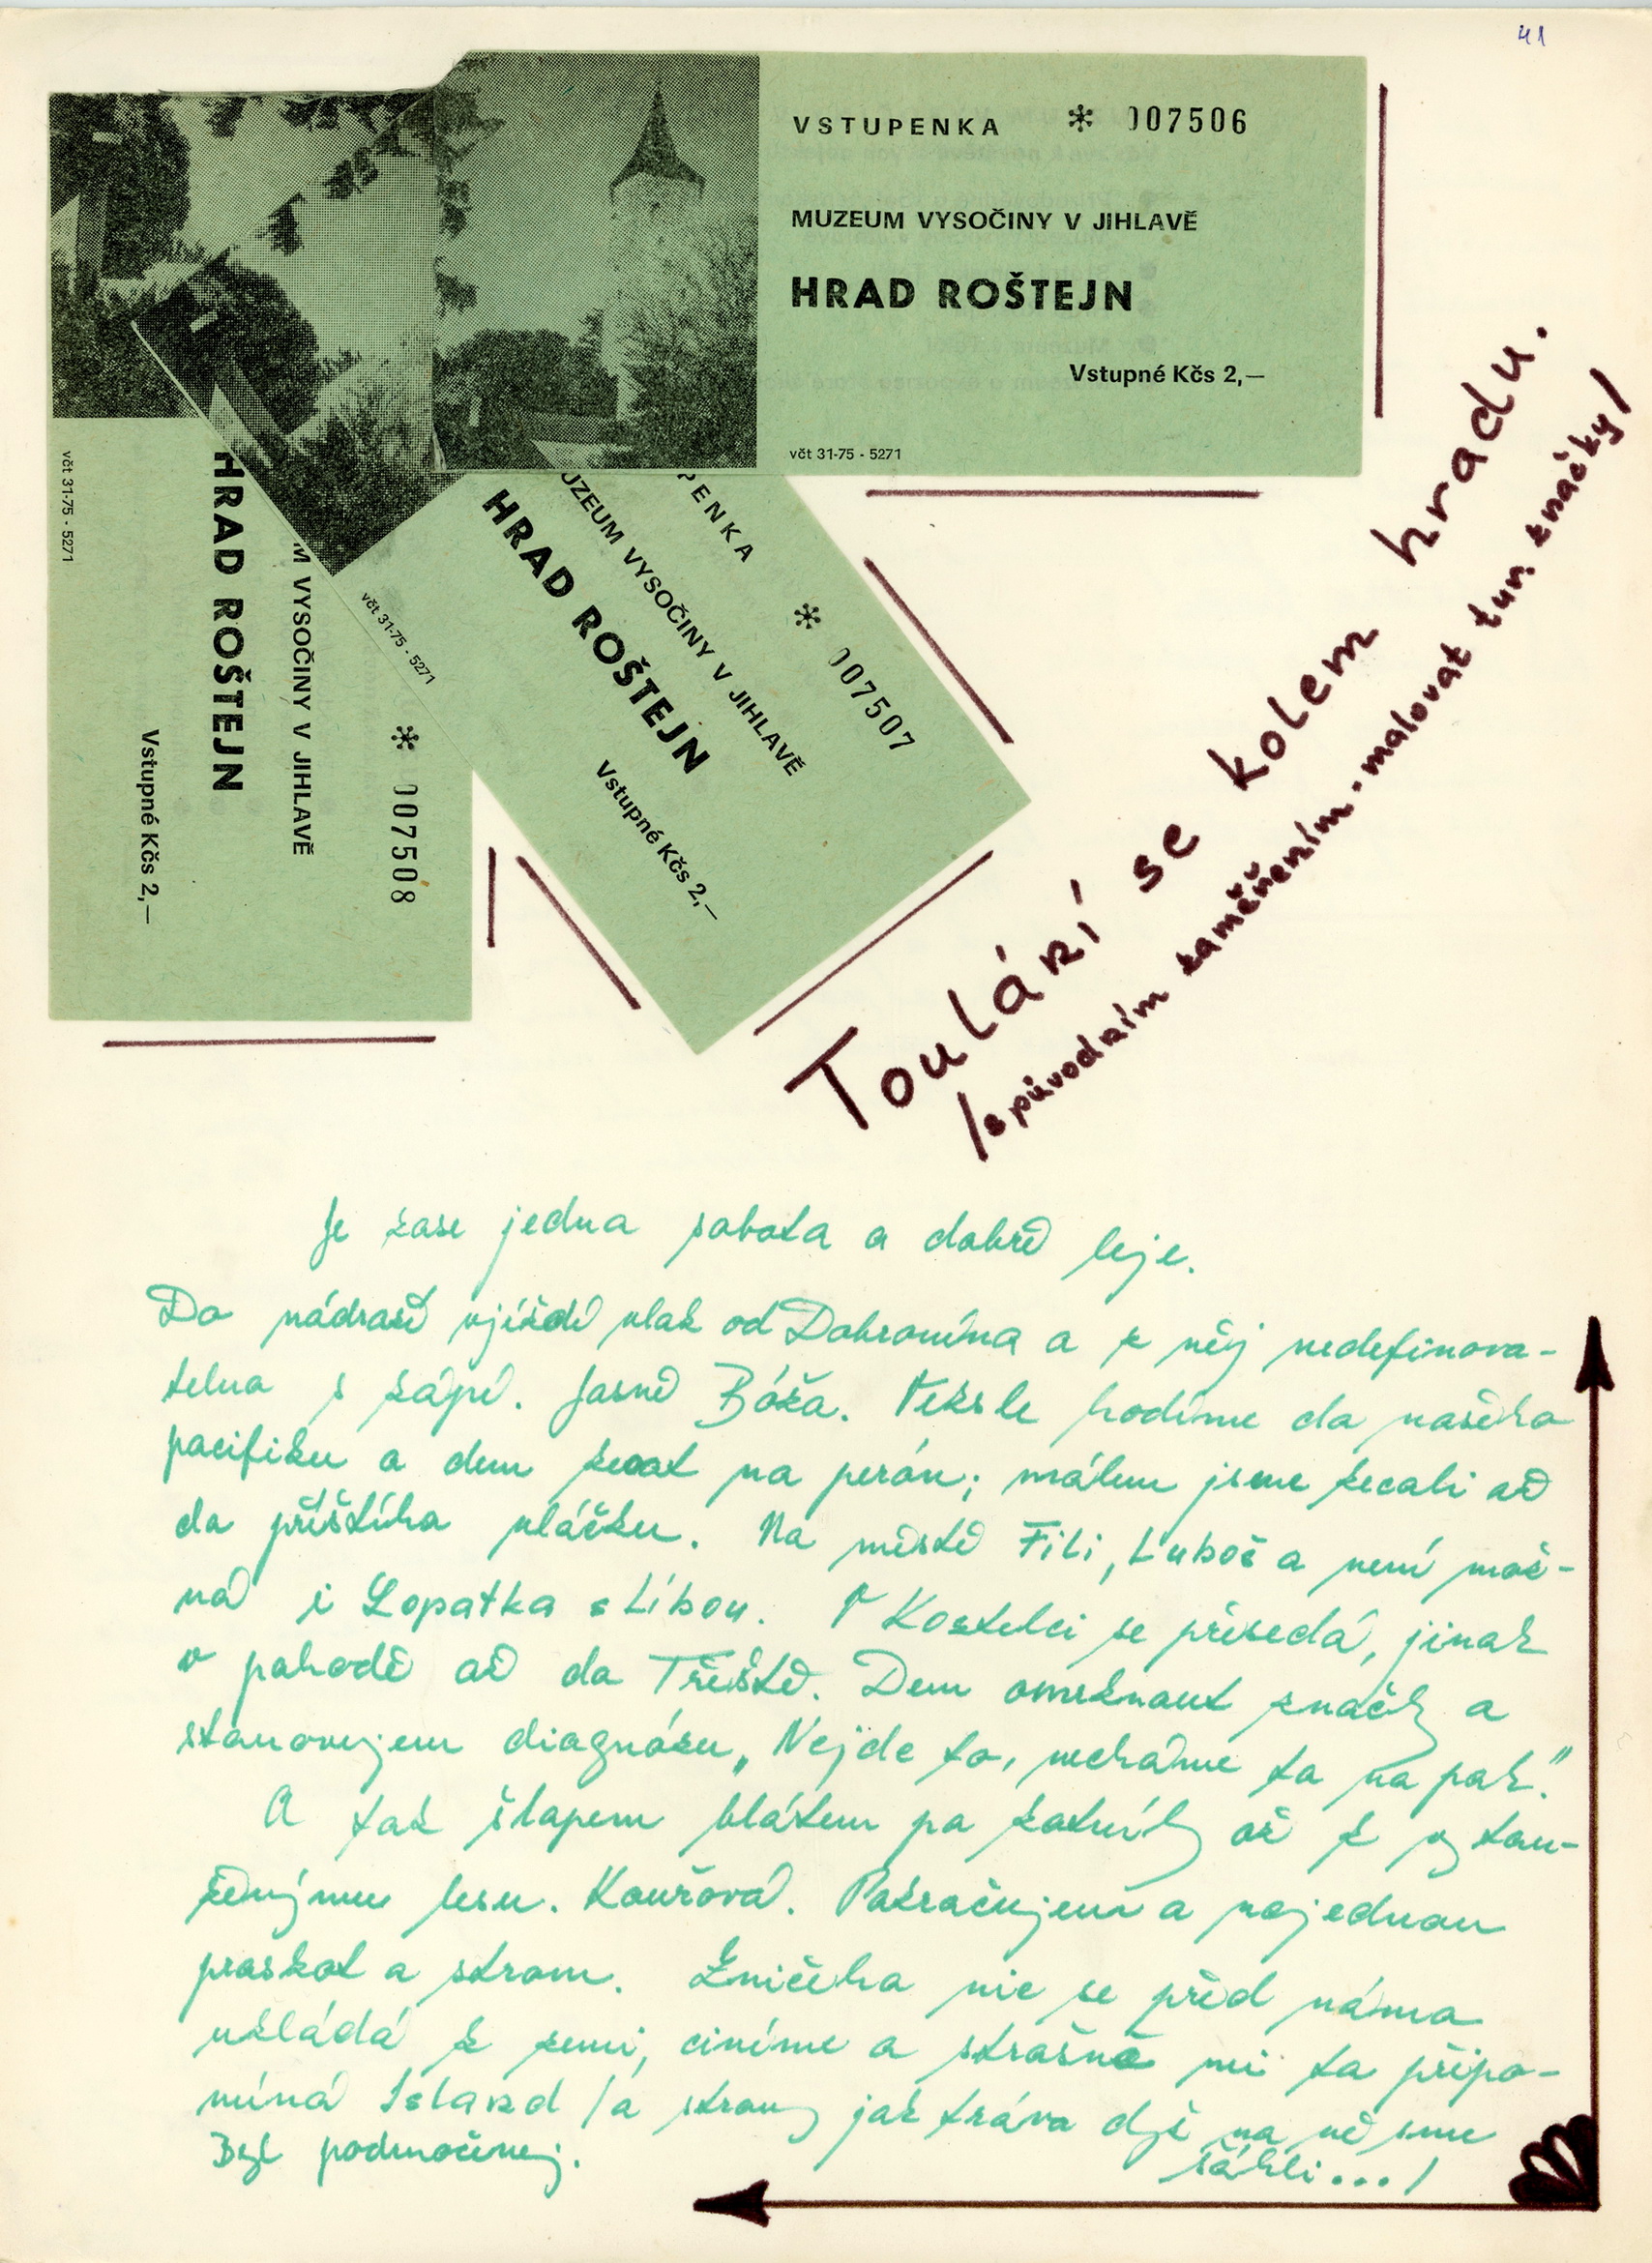 41
VSTUPENKA * 007506
MUZEUM VYSOČINY V JIHLAVĚ
HRAD ROŠTEJN
Vstupné Kčs 2,—
včt 31-75 - 5271
PENKA * 007507
UZEUM VYSOČINY V JIHLAVĚ
HRAD ROŠTEJN
Vstupné Kčs 2,—
včt 31-75 - 5271
* 007508
M VYSOČINY V JIHLAVĚ
HRAD ROŠTEJN
Vstupné Kčs 2,—
včt 31-75 - 5271
Toulání se kolem hradu.
/s původním zaměřením - malovat tur. značky/
Je zase jedna sobota a dobře leje.
Do nádraží vjíždí vlak od Dobronína a z něj nedefinova-
telno s kápí. Jasně Bóža. Veksle hodíme do našeho
pacifiku a dem kecat na perón; málem jsme kecali až
do příštího vláčku. Na místě Fili, Luboš a není mož-
ná i Lopatka s Líbou. V Kostelci se přesedá, jinak
v pohodě až do Třeště. Dem omrknout značky a
stanovujem diagnózu „Nejde to, necháme to na pak."
A tak šlapem blátem po
lesu. Kouřová. Pokračujem a najednou
praskot a strom. Zničeho nic se před náma
ukládá k zemi, činíme a strašně mi to připo-
míná Island /a stromy jak tráva dyž na ně sme
šáhli.../
Byl podmočenej.